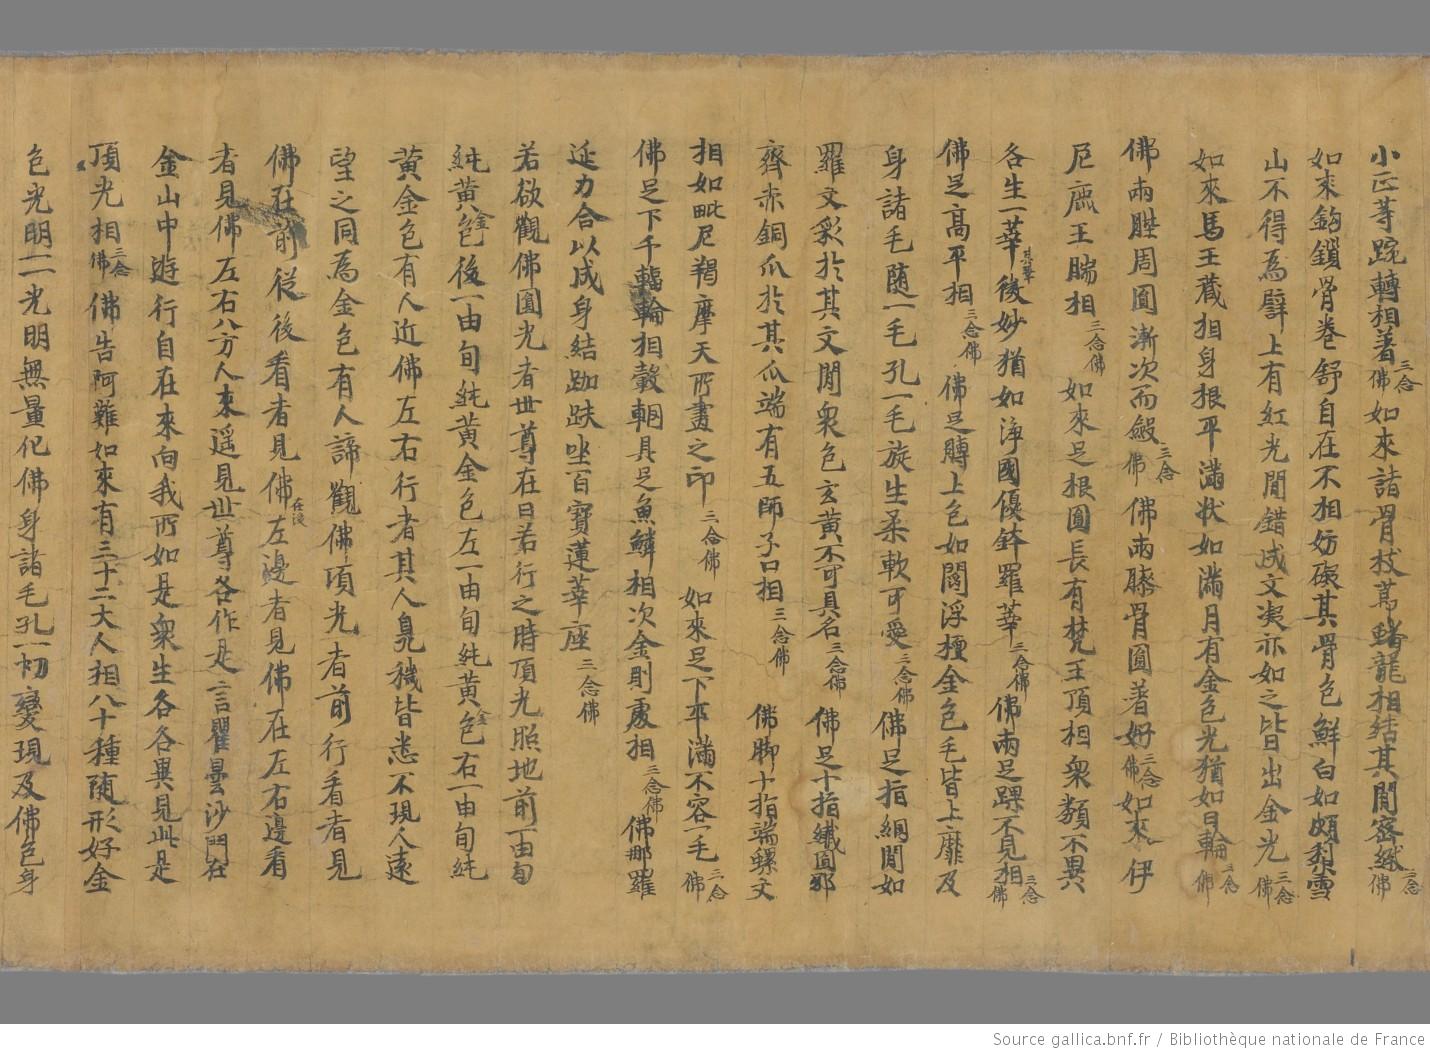 小正等踠轉相著三念佛如來諸骨枝蔦蟠龍相結其間密緻三念佛
如來鈎鎖骨卷舒自在不相妨礙其骨色鮮白如頗梨雪
山不得為譬上有紅光間錯成文凝亦如之皆出金光三念佛
如來馬王藏相身根平滿狀如滿月有金色光猶如日輪三念佛
佛兩髀周圓漸次而緻三念佛佛兩膝骨圓著好三念佛如來伊
尼鹿王腨相三念佛如來足根圓長有梵王頂相衆類不異
各生一華其華後妙猶如淨國優鉢羅華三念佛佛兩足踝不見相三念佛
佛足高平相三念佛佛足膊上色如閻浮檀金色毛皆上靡及
身諸毛随一毛孔一毛旋生柔軟可愛三念佛佛足指網間如
羅文彩於其文間衆色玄黄不可具名三念佛佛足十指纖圓那
齊赤銅爪於其爪端有五師子口相三念佛佛脚十指端螺文
相如毗尼羯摩天所畫之印三念佛如來足下平滿不容一毛三念佛
佛足下千輻輪相轂輞具足魚鱗相次金剛處相三念佛佛那羅
延力合以成身結跏趺坐百寶蓮華座三念佛
若欲觀佛圓光者世尊在日若行之時頂光照地前一由旬
純黄金色後一由旬純黄金色左一由旬純黄金色右一由旬純
黄金色有人近佛左右行者其人臭穢皆悉不現人遠
望之同為金色有人諦觀佛項光者前行看者見
佛在前從後看者見佛在後左邊者見佛在左右邊看
者見佛左右八方人来遥見世尊各作是言瞿曇沙門在
金山中遊行自在來向我所如是衆生各各異見此是
頂光相三念佛佛告阿難如來有三十二大人相八十種随形好金
色光明一一光明無量化佛身諸毛孔一切變現及佛色身
Source gallica.bnf.fr / Bibliothèque nationale de France